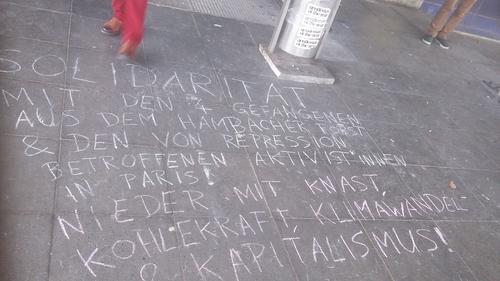 SOLIDARITÄT
MIT DEN 4 GEFANGENEN
AUS DEM HAMBACHER FORST
& DEN VON REPRESSION
BETROFFENEN AKTIVIST.INNEN
IN PARIS!
NIEDER MIT KNAST,
KOHLEKRAFT, KLIMAWANDEL
& KAPITALISMUS!